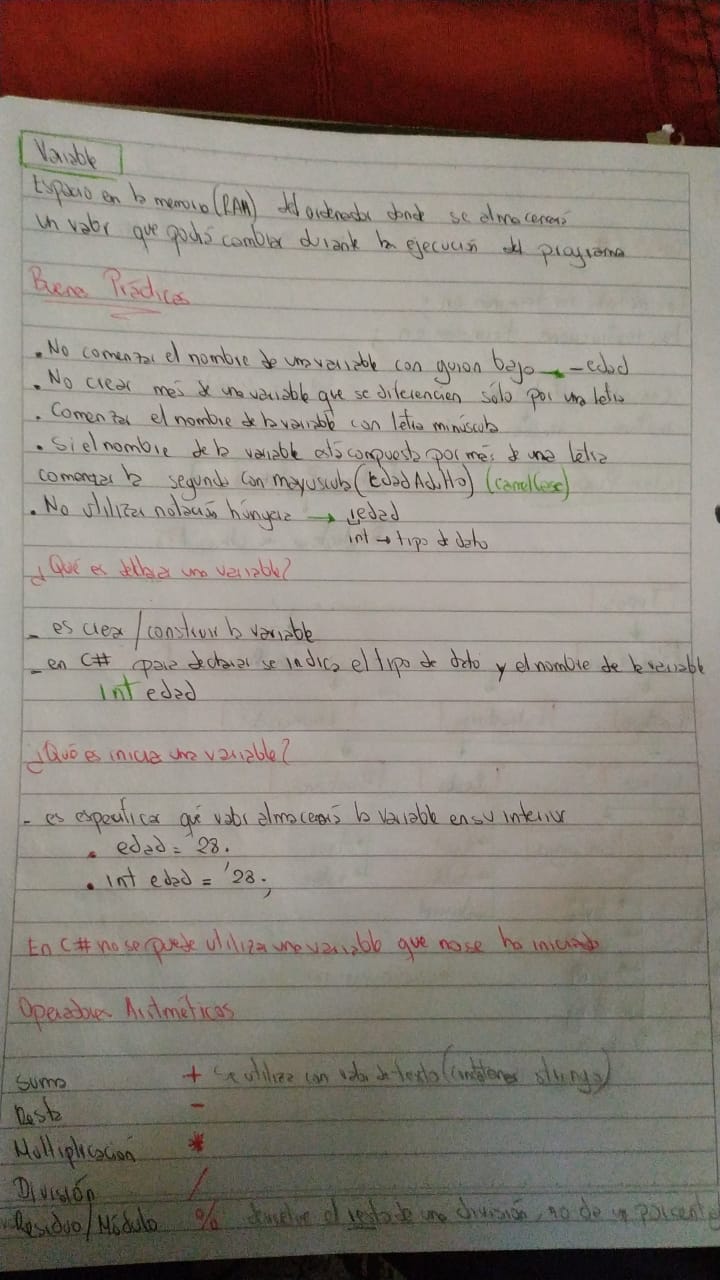 Variable
Espacio en la memoria (RAM) del ordenador donde se almacenará
un valor que podrá cambiar durante la ejecución del programa
Buenas Prácticas
. No comenzar el nombre de una variable con guion bajo → _edad
. No crear más de una variable que se diferencien sólo por una letra
. Comenzar el nombre de la variable con letra minúscula
. Si el nombre de la variable está compuesta por más de una letra
comenzar la segunda con mayuscula (EdadAdulto) (camelCase)
. No utilizar notación húngara → iedad
int → tipo de dato
¿Qué es declarar una variable?
- es crear / construir la variable
- en C# para declarar se indica el tipo de dato y el nombre de la variable
int edad
¿Qué es iniciar una variable?
- es especificar qué valor almacenará la variable en su interior
. edad = 28.
. int edad = 28;
En C# no se puede utilizar una variable que no se ha iniciado
Operadores Aritméticos
Suma + se utiliza con valor de texto ( strings)
Resta -
Multiplicación *
División /
Residuo/Módulo % devuelve el resto de una división, no da un